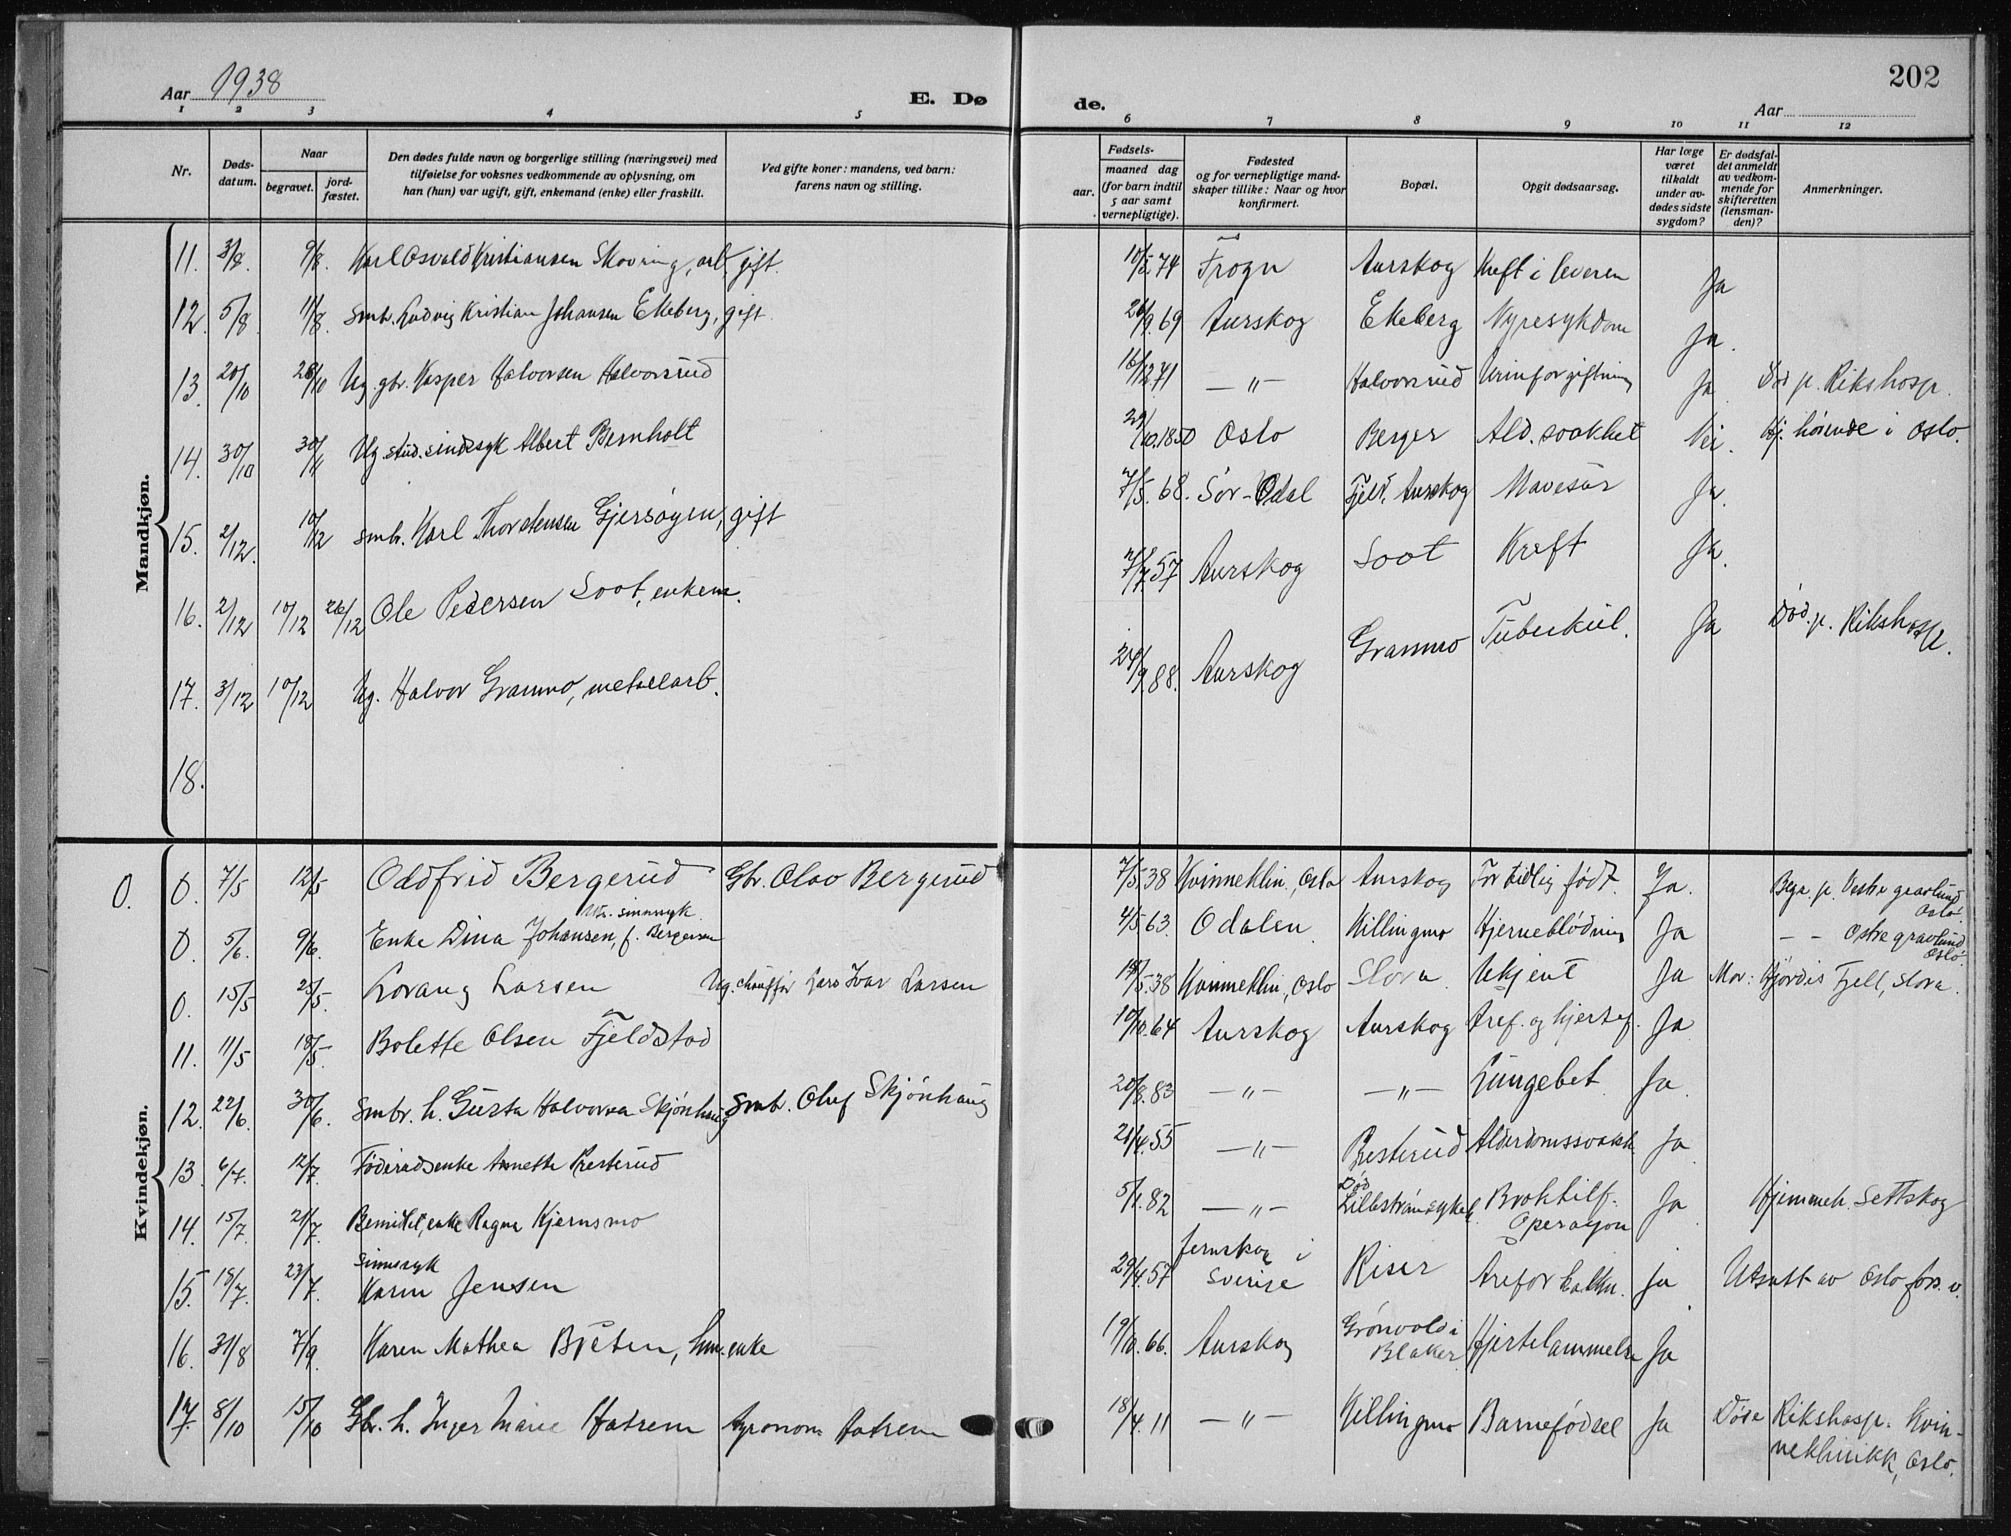 202
Aar 1938
E. Dø
de.
Aar
1 2 3 4 5 6 7 8 9 10 11 12
Nr.
Døds-
datum.
Naar
begravet.
jord-
fæstet.
Den dødes fulde navn og borgerlige stilling (næringsvei) med
tilføielse for voksnes vedkommende av oplysning, om
han (hun) var ugift, gift, enkemand (enke) eller fraskilt.
Ved gifte koner: mandens, ved barn:
farens navn og stilling.
Fødsels-
aar.
maaned dag
(for barn indtil
5 aar samt
vernepligtige).
Fødested
og for vernepligtige mand-
skaper tillike: Naar og hvor
konfirmert.
Bopæl.
Opgit dødsaarsag.
Har læge
været
tilkaldt
under av-
dødes sidste
sygdom?
Er dødsfal-
det anmeldt
av vedkom-
mende for
skifteretten
(lensman-
den)?
Anmerkninger.
Mandkjøn.
11. 3/8. 9/8. Karl Osvald Kristiansen Skovring, arb, gift. 10/2 74 Frogn Aurskog Kreft i leveren Ja
12. 5/8. 11/8. Smbr. Ludvig Kristian Johansen Ekeberg, gift. 26/9. 69 Aurskog Ekeberg Nyresykdom Ja.
13. 20/10 26/10 Ug. gbr. Kasper Halvorsen Halvorsrud 16/12 71 — " — Halvorsrud Urinforgiftning Ja Død p. Rikshosp.
14. 30/10 30/11 Ug. stud. sindssyk Albert Bernholt 29/10. 1850 Oslo Berger Ald. svakhet Nei. Hj. hørende i Oslo.
15. 2/12. 10/12 Smbr. Karl Thorstensen Gjersøyen, gift 7/5. 68. Sør-Odal Fjeld, Aurskog Mavesår Ja.
16. 2/12 10/12 26/12 Ole Pedersen Soot, enkem. 7/7. 57 Aurskog Soot Kreft Ja.
17. 3/12 10/12 Ug. Halvor Granmo, metselarb. 24/9 88. Aurskog Granmo Tuberkul. Ja Død. p. Rikshosp.
18.
Kvindekjøn.
0. 0. 7/5 12/5 Oddfrid Bergerud Gbr. Olav Bergerud 7/5 38 Kvinneklin., Oslo Aurskog For tidlig født. Ja. Begr. p. Vestre gravlund
Oslo.
sinnssyk
0. 5/6. 9/6. Enke Dina Johansen, f. Bergersen 4/5 63. Odalen Killingmo Hjerneblødning Ja — — Østre gravlund,
Oslo.
0. 15/5 25/5. Lovang Larsen Ug. chauffør Ivar Larsen 15/5. 38 Kvinneklin., Oslo Slora Ukjent Ja Mor: Hjørdis Fjell, Slora.
11. 11/5 18/5. Bolette Olsen Fjeldstad 10/10. 64 Aurskog Aurskog Åref. og hjertef. Ja
12. 22/6. 30/6. Smbr. h. Gusta Halvorsen Skjønhaug Smbr. Oluf Skjønhaug 20/8. 83 — " — — " — Lungebet. Ja.
13. 6/7. 12/7. Føderådsenke Annette Presterud 21/4. 55 — " — Presterud Alderdomssvakh. Ja
14. 15/7. 21/7. Bemidlet, enke Ragna Kjernsmo 5/1. 82 — " — Død
Lillestrøm sykeh. Brokktilf.
Operasjon Ja Hjemmeh. Settskog
Sinnssyk
15. 18/7. 23/7. Karin Jensen 29/4. 57 Jernskog i
Sverige Riser Åreforkalkn. Ja Utsatt av Oslo fors. v.
16. 31/8 7/9. Karen Mathea Bråten, enke 19/10. 66. Aurskog Grønvold i
Blaker Hjertelammelse Ja
17. 8/10 15/10 Gbr. h. Inger Marie Hatrem Agronom Hatrem 18/4. 11 — " — Killingmo Barnefødsel Ja Døde Rikshosp. Kvin-
neklinikk, Oslo.